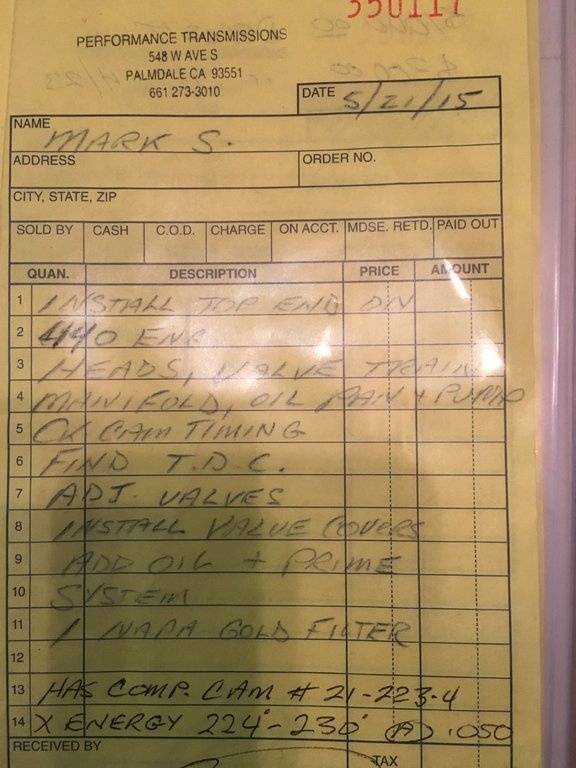 350117
PERFORMANCE TRANSMISSIONS
548 W AVE S
PALMDALE CA 93551
661 273-3010
DATE 5/21/15
NAME MARK S.
ADDRESS ORDER NO.
CITY, STATE, ZIP
SOLD BY CASH C.O.D. CHARGE ON ACCT. MDSE. RETD. PAID OUT
QUAN. DESCRIPTION PRICE AMOUNT
1 INSTALL TOP END ON
2 440 ENG
3 HEADS, VALVE TRAIN
4 MANIFOLD, OIL PAN + PUMP
5 CK CAM TIMING
6 FIND T.D.C.
7 ADJ. VALVES
8 INSTALL VALVE COVERS
9 ADD OIL + PRIME
10 SYSTEM
11 1 NAPA GOLD FILTER
12
13 HAS COMP. CAM # 21-223-4
14 X ENERGY 224°-230° @ .050
RECEIVED BY
TAX